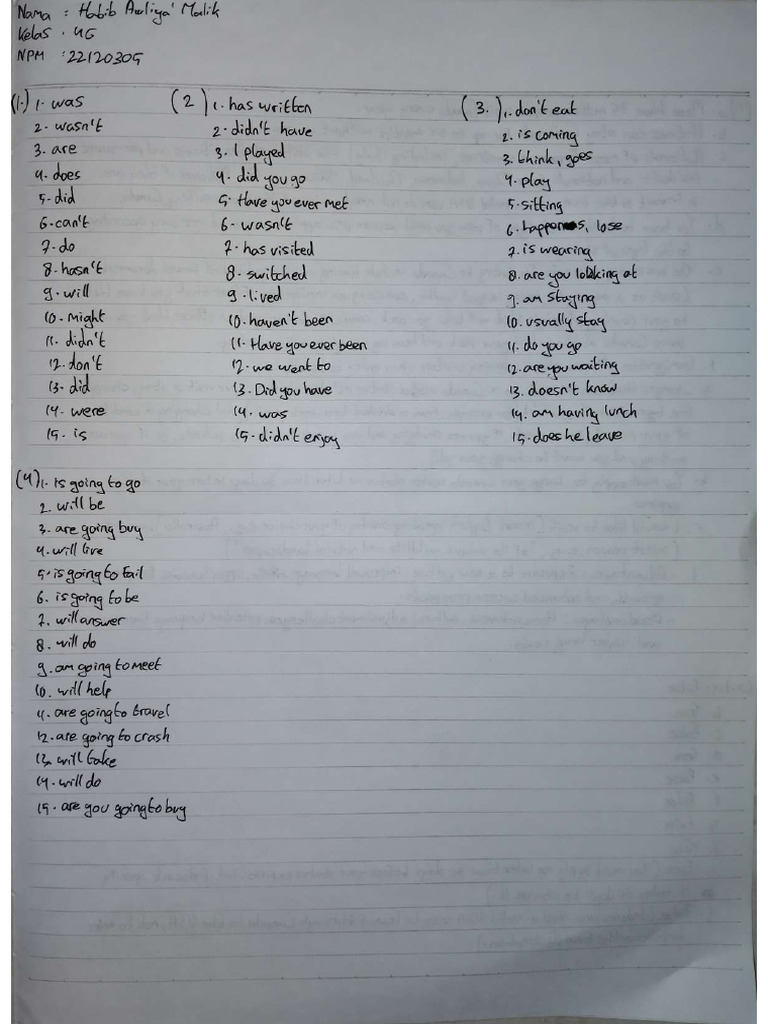 Nama : Habib Auliya' Malik
Kelas : 4G
NPM : 22120305
(1.) 1. was
2. wasn't
3. are
4. does
5. did
6. can't
7. do
8. hasn't
9. will
10. might
11. didn't
12. don't
13. did
14. were
15. is
(2) 1. has written
2. didn't have
3. I played
4. did you go
5. Have you ever met
6. wasn't
7. has visited
8. switched
9. lived
10. haven't been
11. Have you ever been
12. we went to
13. Did you have
14. was
15. didn't enjoy
(3.) 1. don't eat
2. is coming
3. think, goes
4. play
5. sitting
6. happens, lose
7. is wearing
8. are you looking at
9. am staying
10. usually stay
11. do you go
12. are you waiting
13. doesn't know
14. am having lunch
15. does he leave
(4) 1. is going to go
2. will be
3. are going buy
4. will live
5. is going to fail
6. is going to be
7. will answer
8. will do
9. am going to meet
10. will help
11. are going to travel
12. are going to crash
13. will take
14. will do
15. are you going to buy